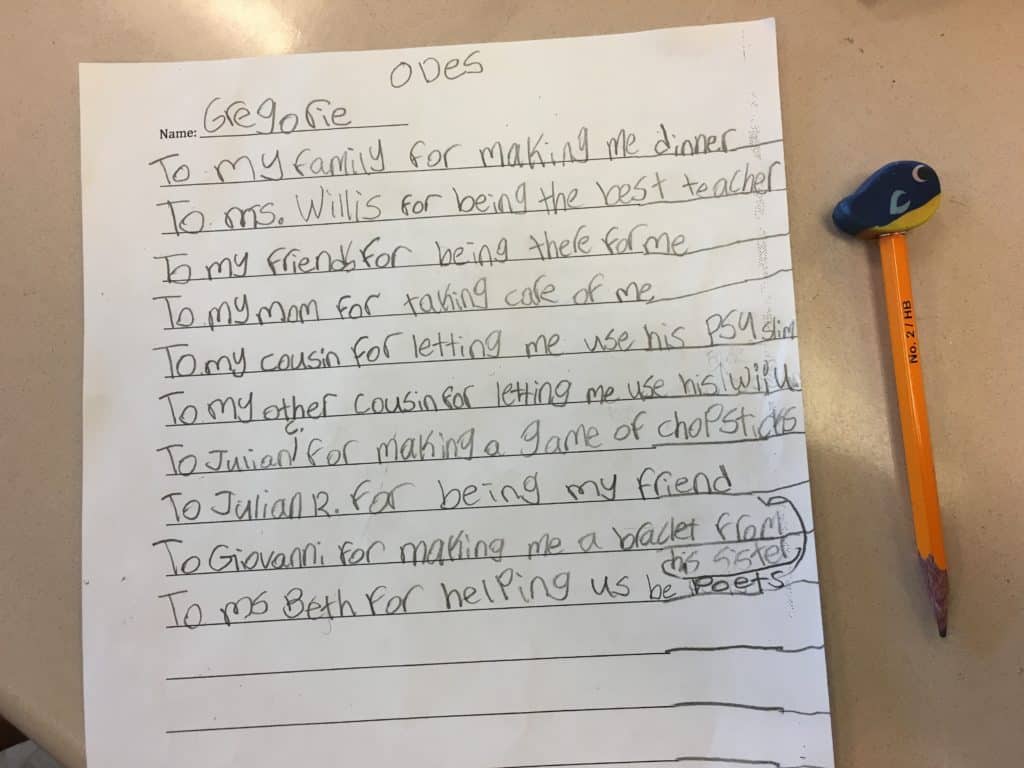 ODes
Name: Gregorie
To my family for making me dinner
To ms. Willis for being the best teacher
To my friends for being there for me
To my mom for taking care of me
To my cousin for letting me use his PS4 slim
To my other cousin for letting me use his wifu
To Julian for making a game of chopsticks
To Julian R. for being my friend
To Giovanni for making me a braclet from
his sister
To ms Beth for helping us be Poets
No. 2 / HB